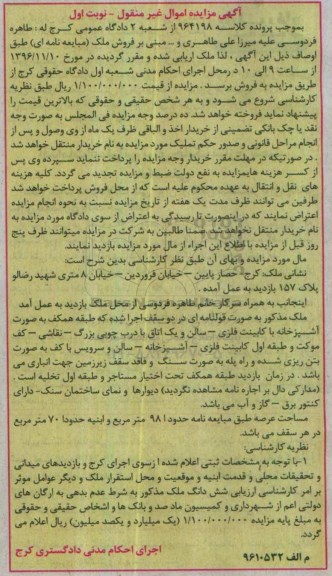 آگهی مزایده اموال غیر منقول - نوبت اول
بموجب پرونده کلاسه ۹۶۴۱۹۸ از شعبه ۲ دادگاه عمومی کرج له : طاهره
فردوسی علیه میرزا علی طاهری و .. مبنی بر فروش ملک (مبایعه نامه ای) طبق
اوصاف ذیل این آگهی ، لذا ملک ارزیابی شده و مقرر گردیده در مورخ ۱۳۹۶/۱۱/۱۰
از ساعت ۹ الی ۱۰ در محل اجرای احکام مدنی شعبه اول دادگاه حقوقی کرج از
طریق مزایده به فروش برسد . مزایده از قیمت ۱/۱۰۰/۰۰۰/۰۰۰ ریال طبق نظریه
کارشناسی شروع می شود و به هر شخص حقیقی و حقوقی که بالاترین قیمت را
پیشنهاد نماید فروخته خواهد شد. ده درصد وجه مزایده فی المجلس به صورت وجه
نقد یا چک بانکی تضمینی از خریدار اخذ و الباقی ظرف یک ماه از وی وصول و پس از
انجام مراحل قانونی و صدور حکم تملیک مورد مزایده به نام خریدار منتقل خواهد شد
. در صورتیکه در مهلت مقرر خریدار وجه مزایده را پرداخت ننماید سپرده وی پس
از کسر هزینه هایمزایده به نفع دولت ضبط و مزایده تجدید می گردد. کلیه هزینه
های نقل و انتقال به عهده محکوم علیه است که از محل فروش پرداخت خواهد شد
طرفین می توانند ظرف مدت یک هفته از تاریخ مزایده نسبت به نحوه انجام مزایده
اعتراض نمایند که در اینصورت تا رسیدگی به اعتراض از سوی دادگاه مورد مزایده به
نام خریدار منتقل نخواهد شد ضمنا طالبین به شرکت در مزایده میتوانند ظرف پنج
روز قبل از مزایده با اطلاع این اجراء از مال مورد مزایده بازدید نمایند.
مال مورد مزایده و بهای آن طبق نظر کارشناسی بدین شرح است:
نشانی ملک: کرج - حصار پایین - خیابان فروردین - خیابان ۸ متری شهید رضالو
پلاک ۱۵۷ بازدید به عمل آمده .
اینجانب به همراه سرکار خانم طاهره فردوسی از محل ملک بازدید به عمل آمد
ملک مذکور به صورت قولنامه ای در دو سقف اجرا شده که طبقه همکف به صورت
آشپزخانه با کابینت فلزی - سالن و یک اتاق با درب چوبی بزرگ - نقاشی - کف
موکت و طبقه اول کابینت فلزی - آشپزخانه - سالن و سرویس با کف به صورت
بتن ریزی شده و راه پله به صورت سنگ و فاقد سقف زیرزمین جهت انباری می
باشد . در زمان بازدید طبقه همکف تحت اختیار مستاجر و طبقه اول تخلیه است .
(مدارکی دال بر اجاره نامه مشاهده نگردید) دیوارها و نمای ساختمان سنگ- دارای
کنتور برق - گاز و آب می باشد.
مساحت عرصه طبق مبایعه نامه حدودا ۹۸ متر مربع و ابنیه حدودا ۷۰ متر مربع
در هر سقف می باشد.
نظریه کارشناسی:
۱-با توجه به مشخصات ثبتی اعلام شده از سوی اجرای کرج و بازدیدهای میدانی
و تحقیقات محلی و قدمت ابنیه و موقعیت و محل استقرار ملک و دیگر عوامل موثر
بر امر کارشناسی ارزیابی شش دانگ ملک مذکور به شرط عدم بدهی به ارگان های
دولتی اعم از شهرداری و کمیسیون ماد صد و بانک ها و اشخاص حقیقی و حقوقی
به مبلغ پایه مزایده ۱/۱۰۰/۰۰۰/۰۰۰ (یک میلیارد و یکصد میلیون) ریال اعلام می
گردد.
م الف ۹۶۱۰۵۳۲
اجرای احکام مدنی دادگستری کرج